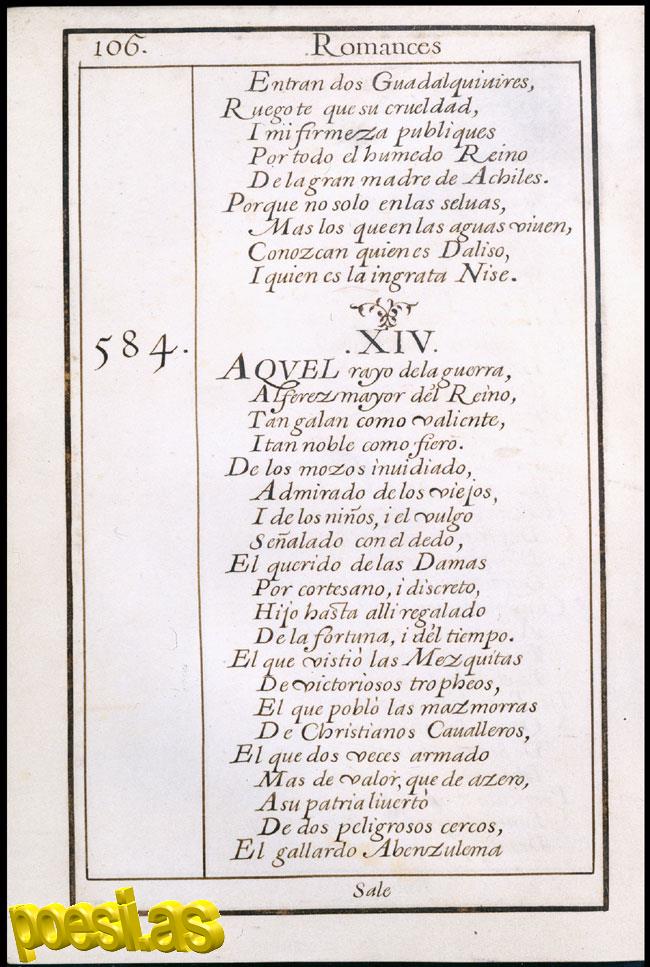 106.
.Romances
Entran dos Guadalquiuires,
Ruegote que su crueldad,
I mi firmeza publiques
Por todo el humedo Reino
De la gran madre de Achiles.
Porque no solo en las seluas,
Mas los que en las aguas viuen,
Conozcan quien es Daliso,
I quien es la ingrata Nise.
584.
.XIV.
AQVEL rayo de la guerra,
Alferez mayor del Reino,
Tan galan como valiente,
I tan noble como fiero.
De los mozos inuidiado,
Admirado de los viejos,
I de los niños, i el vulgo
Señalado con el dedo,
El querido de las Damas
Por cortesano, i discreto,
Hijo hasta alli regalado
De la fortuna, i del tiempo.
El que vistiò las Mezquitas
De victoriosos tropheos,
El que poblò las mazmorras
De Christianos Caualleros,
El que dos veces armado
Mas de valor, que de azero,
A su patria liuertò
De dos peligrosos cercos,
El gallardo Abenzulema
Sale
poesi.as